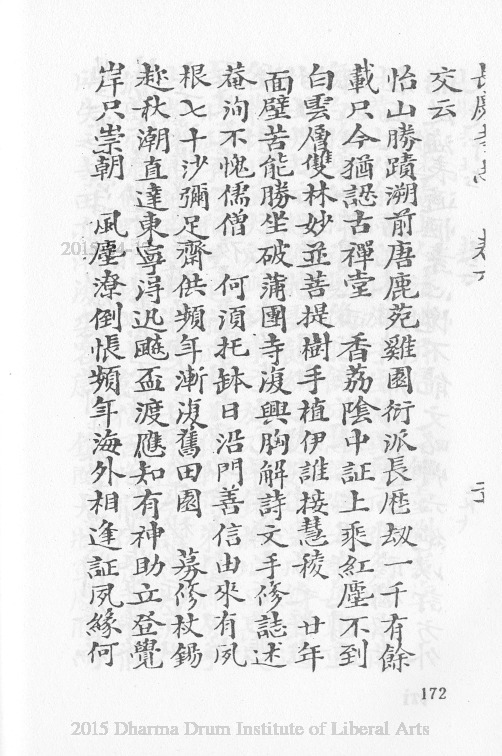 交云
怡山勝蹟溯前唐鹿苑雞園衍派長歷劫一千有餘
載只今猶認古禪堂　香荔陰中証上乘紅塵不到
白雲層雙林妙並菩提樹手植伊誰接慧稜　廿年
面壁苦能勝坐破蒲團寺復興胸解詩文手修誌述
菴洵不愧儒僧　何須托鉢日沿門善信由來有夙
根七十沙彌足齋供頻年漸復舊田園　募修杖錫
赴秋潮直達東寧淂迅飈盃渡應知有神助立登覺
岸只崇朝　風塵潦倒悵頻年海外相逢証夙緣何
172
2015 Dharma Drum Institute of Liberal Arts